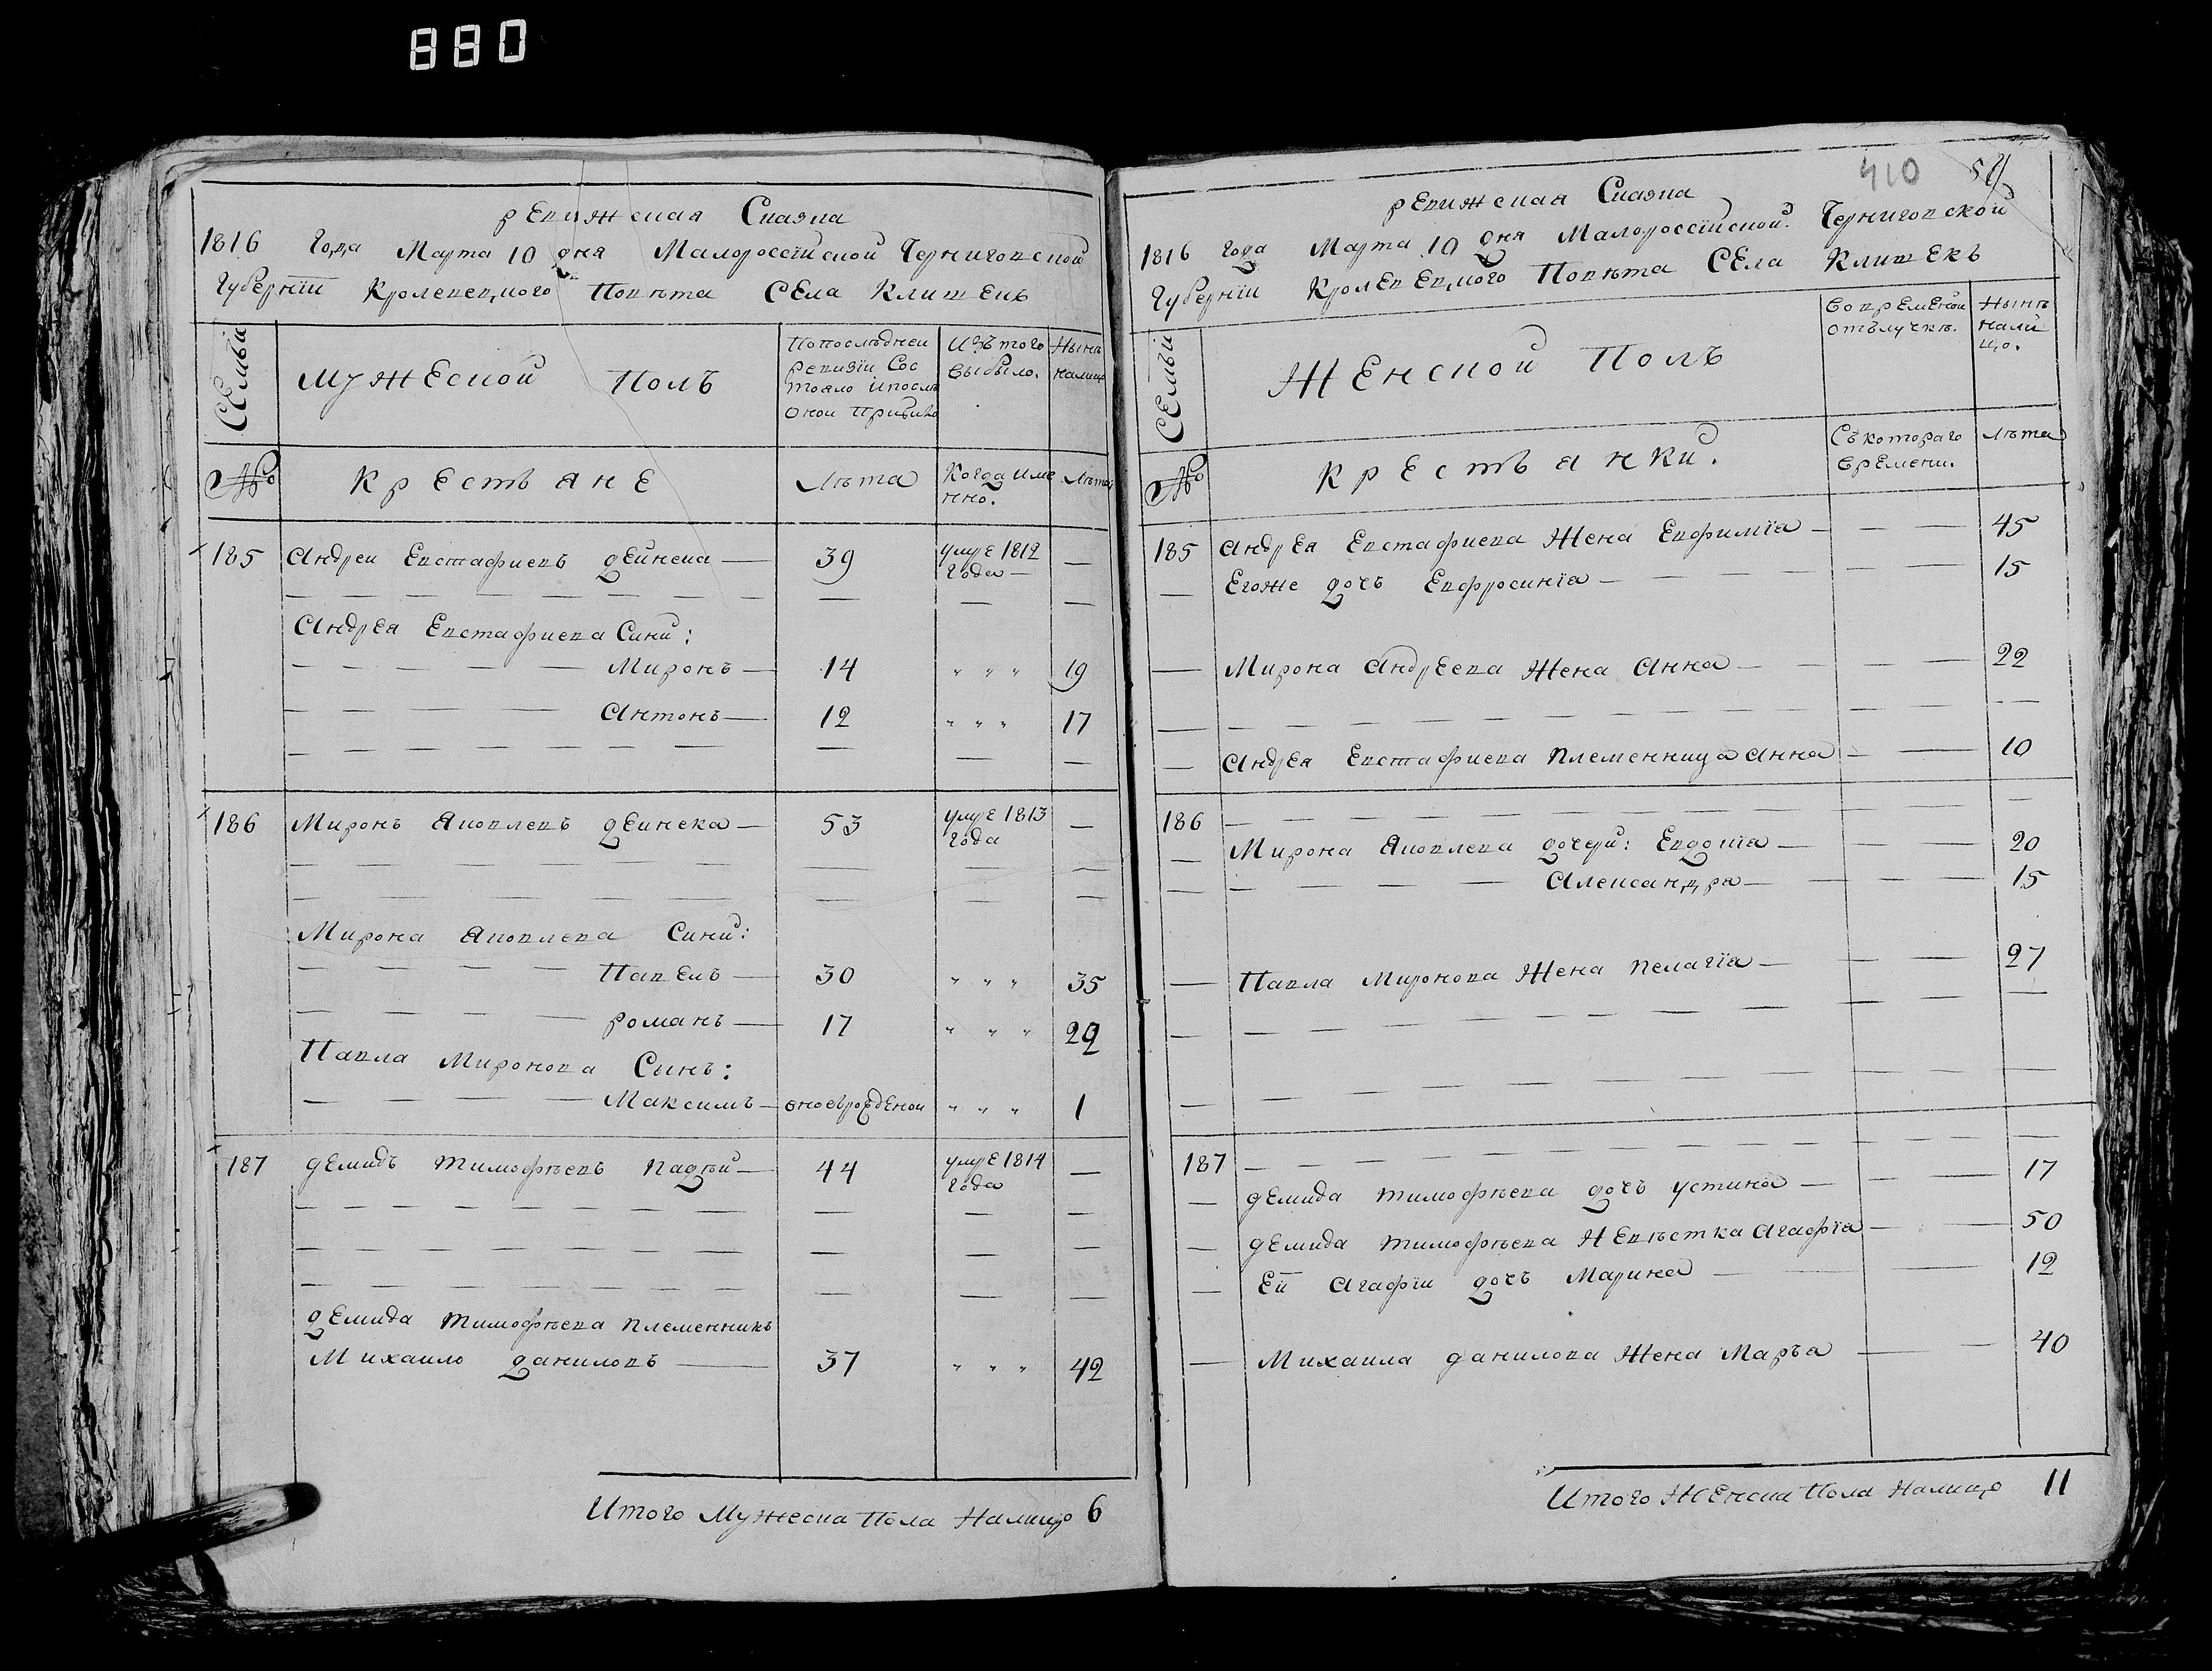 880
ревижская Сказка
1816 Года Марта 10 дня Малороссїйской Черниговской
Губернїи Кролевецкого Повѣта Села Клишекъ
Семьи
Мужеской Полъ
Попослѣдней
Ревизїи Сос
тояло ипослѣ
оной Прибило
Изъ того
выбыло.
Нынѣ
налицо
№
Крестьяне
Лѣта
Когда име
нно.
Лѣта
185 Андрей Евстафиевъ дейнека — 39 умре 1812 —
года —
Андрея Евстафиева Сини:
Миронъ — 14 " " " 19
Антонъ — 12 " " " 17
186 Миронъ Яковлевъ дейнека — 53 умре 1813 —
года
Мирона Яковлева Сини:
Павелъ — 30 " " " 35
романъ — 17 " " " 22
Павла Миронова Сынъ:
Максимъ — вновьрожденой " " " 1
187 демидъ тимофѣевъ — 44 умре 1814 —
года
демида тимофѣева племенникъ
Михайло даниловъ — 37 " " " 42
Итого Мужеска Пола Налицо 6
410
ревижская Сказка
1816 года Марта 10 дня Малороссїйской Черниговской
Губернїи Кролевецкого Повѣта Села Клишекъ
Семьи
Женской Полъ
Вовременой
отълучкѣ.
Нынѣ
нали
цо.
№
Крестьянки.
Съкотораго
времени.
Лѣта
185 Андрея Евстафиева Жена Евфимїа — 45
Егоже дочь Евфросинїа — 15
Мирона Андреева Жена Анна — 22
Андрея Евстафиева племенница Анна — 10
186
Мирона Яковлева дочери: Евдокїа — 20
Александра — 15
Павла Миронова Жена Пелагїа — 27
187
демида тимофѣева дочь устина — 17
демида тимофѣева Невѣстка Агафїа — 50
Ей Агафїи дочь Марина — 12
Михайла данилова Жена Марья — 40
Итого Женска Пола Налицо 11